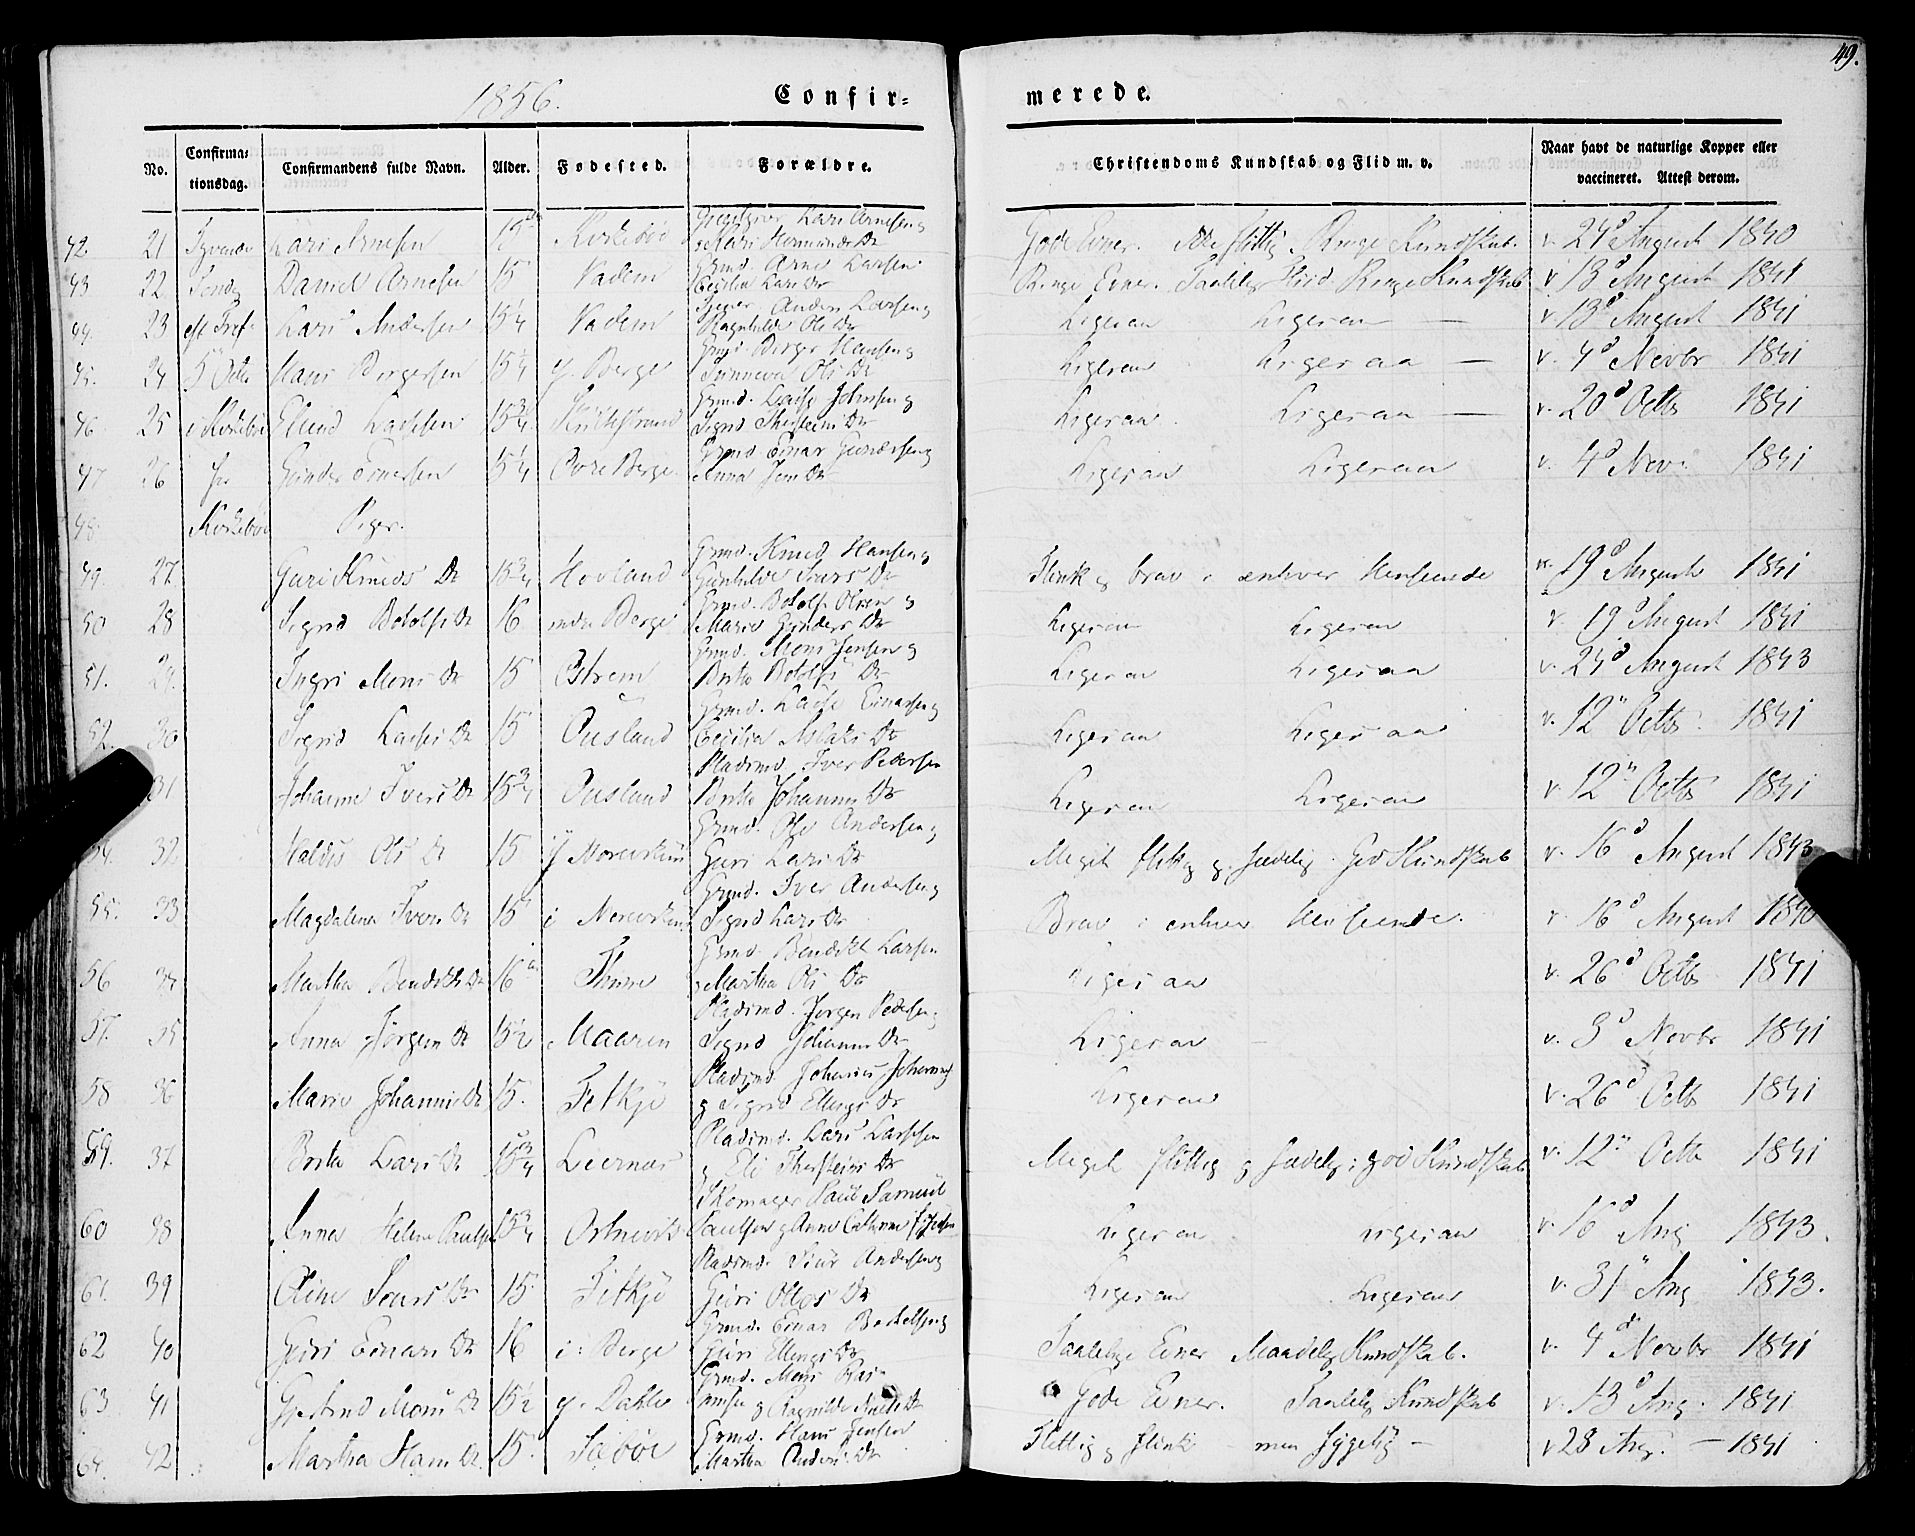 49.
1856.
Confir=
merede.
No. Confirma-tionsdag. Confirmandens fulde Navn. Alder. Fødested. Forældre. Christendoms Kundskab og Flid m. v. Naar havt de naturlige Kopper eller vaccineret. Attest derom.
42 21 Lars Arnesen 15 Lars Arnesen og
Kari Hermunds Dr Gode Evner. Ikke flittig. Ringe Kundskab. v. 24d August 1840
43 22 Daniel Arnesen 15 Vadem Grmd. Arne Larsen
Cecilia Lars Dr Ringe Evner. Taalelig Flid. Ringe Kundskab v. 13d August 1841
44. 23 Lars Andersen 15¼ Vadem Anders Larsen og
Ragnhilde Ols Dr Ligesaa Ligesaa — v. 13d August 1841
45. 24 5 Octb Hans Bergersen 15¼ y. Berge Grmd. Berger Hansen og
Synneva Ols Dr Ligesaa Ligesaa — v. 4d Novbr 1841
46 25 Elend Lassesen 15¾ Grmd. Lasse Johnsen og
Sigrid Thorsteins Dr Ligesaa Ligesaa — v. 20d Octb 1841
47 26 for Gunder Einersen 15¼ Øvre Berge Grmd Einar Gundersen og
Anna Jens Dr Ligesaa Ligesaa v. 4d Nov: 1841
48. Piger.
49. 27 Guri Knuds Dr 15¾ Hovland Grmd. Knud Hansen og
Gunhilde Siurs Dr Flink og brav i enhver Henseende v. 19d August 1841
50 28 Sigrid Botolfs Dr 16 indre Berge Grmd. Botolf Olsen og
Marie Gunders Dr Ligesaa Ligesaa v. 19d August 1841
51. 29. Ingri Mons Dr 15 Ostrem Grmd. Mons Jensen og
Britha Botolfs Dr Ligesaa Ligesaa v. 24d August 1843
52. 30 Sigrid Lasses Dr 15 Ousland Grmd. Lasse Einarsen og
Cecilia Aslaks Dr Ligesaa Ligesaa v. 12" Octb. 1841
31 Johanne Ivers Dr 15¾ Ousland Pladsmd. Iver Pedersen
Britha Johannes Dr Ligesaa Ligesaa v. 12" Octb 1841
54. 32 Valdis Ols Dr 15 Grmd. Ole Andersen og
Guri Lars Dr Meget flittig og sædelig. God Kundskab v. 16d August 1843
55. 33 Magdalena Ivers Dr 15 i Grmd. Iver Andersen og
Sigrid Lars Dr Brav i enhver Henseende. v. 16d August 1840
56 34 Martha Bendikts Dr 16 Thune Grmd Bendikt Larsen
Martha Ols Dr Ligesaa v. 26d Octb 1841
57. 35 Anna Jørgens Dr 15½ Maaren Pladsmd. Jørgen Pedersen og
Sigrid Johannes Dr Ligesaa v. 3d Novbr 1841
58 36 Marie Johannes Dr 15. Fetkje Pladsmd. Johannes
og Sigrid Ellings Dr Ligesaa v. 26d Octb 1841
59. 37 Brita Lars Dr 15¾ Leernæs Pladsmd. Lars Larssen
og Eli Thorsteins Dr Meget flittig og sædelig; god Kundskab v. 12" Octb 1841
60 38 Anna Helene Paulsen 15¾ Ortnevik Skomager Paul Samuel
Paulsen og Anne Cathrine Ligesaa Ligesaa v. 16d Aug 1843.
61. 39 Oline Siurs Dr 15. Fetkje Pladsmd. Siur Andersen og
Guri Ottos Dr Ligesaa Ligesaa v. 31" Aug 1843.
62 40 Guri Einars Dr 16 i: Berge Grmd. Einar
Guri Ellings Dr Taalelige Evner Maadelig Kundskab. v. 4de Novbr 1841
63 41 Gjertrud Mons Dr 15½ y. Dahle Grmd. Mons
og Ragnilde Dr Gode Evner. Taalelig Kundskab v. 13d Aug. 1841
64. 42 Martha Hans Dr 15. Sæbøe Grmd. Hans Jensen
Martha Anders Dr Flittig og flink — men sygelig — v 28 Aug. — 1841